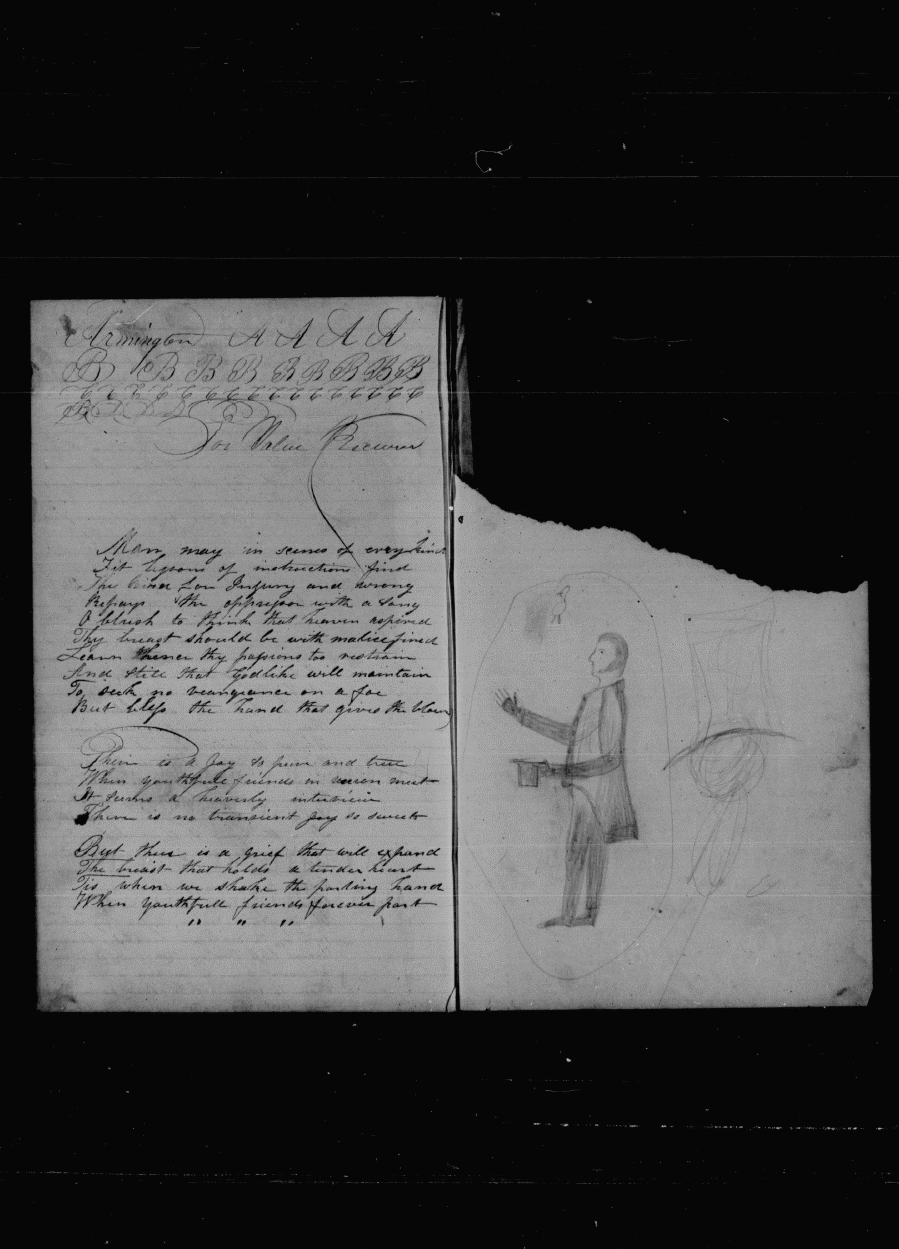 Armington A A A A
B B B B B B B B B
C C C C C C C C C C C C C C
D D D D
For Value Received
Man may in scenes of every kind
Fit lessons of instruction find
The for Injury and wrong
Repays the oppressor with a song
O blush to think that heaven aspired
Thy breast should be with malice fired
Learn thence thy passions too restrain
And still that Godlike will maintain
To seek no veangeance on a foe
But bless the hand that gives the blow
Their is a Joy so pure and true
When youthfull friends in union meet
It seems a heavenly interview
There is no transient joy so sweet
But there is a grief that will expand
The breast that holds a tender heart
Tis when we shake the parting hand
When youthfull friends forever part
" " "